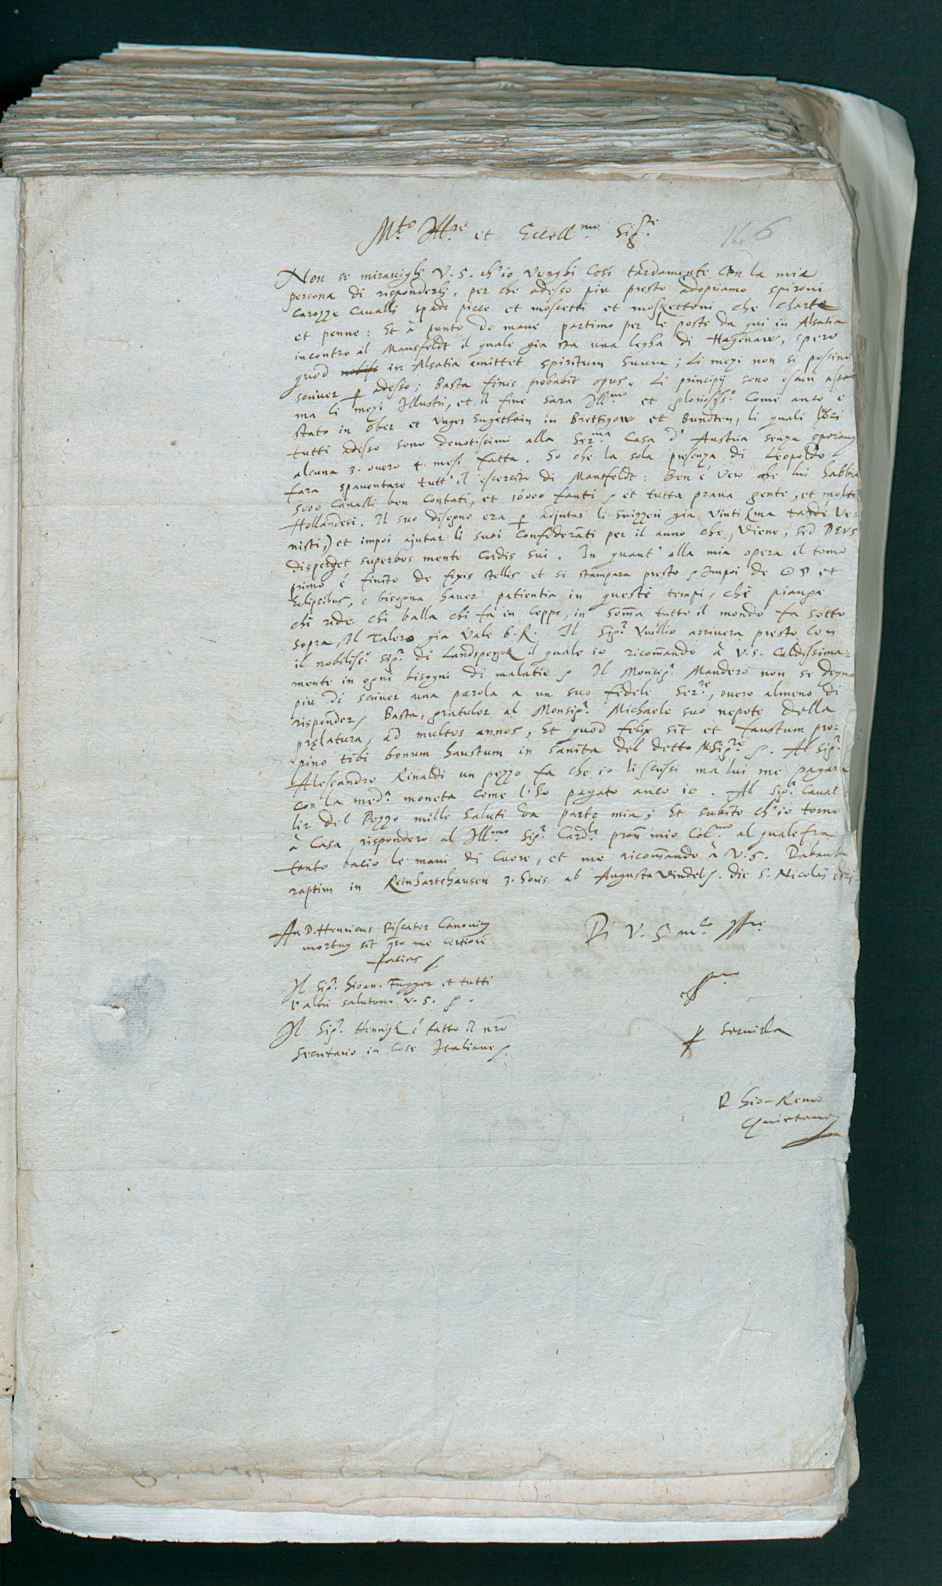 M.to Ill.re et Eccell.mo Sig.re
146
Non se miravighi V. S. ch'io venghi Cosi tardamente Con la mia
persona di risponderli, per che adesso piu presto adopriamo spironi
Carozze Cavalli spade picce et moscetti et moskettoni che Charte
et penne: Et à punto de mane partimo per le poste da qui in Alsatia
incontro al Mansfeldt il quale gia sta una legha di Hagenaw, spero
quod in Alsatia emittet spiritum suum; Li mezi non si possino
scriver p adesso; Basta finis probabit opus. Li principij sono
ma li mezi Illustri, et il fine sara Ill.mo et gloriosis.o Come anco è
stato in Ober et Unger Engethain in Brettigow et Bundten, li quali
tutti adesso sono devotissimi alla Ser.ma Casa d'Austria senza speranza
alcuna 3. overo 4. mesi fatta. So che la sola presenza di Leopoldo
fara spaventare tutt'il essercito di Mansfeldt: Ben è vero che lui habbia
5000 Cavalli ben Contati, et 10000 fanti, et tutta prava gente, et molti
Hollandesi. Il suo disegno era p adjutar li Suizzeri gia vinti (ma
nisti,) et impoi ajutar li suoi Confederati per il anno che viene, sed DEUS
disperget superbos mente Cordis sui. In quant'alla mia opera il tomo
primo é finito de fixis stellis et si stampara presto, Impoi de ☉ et
Eclipsibus, e bisogna haver patientia in questi tempi, chi piange
chi ride chi balla chi fa in Ceppe, in somma tutto il mondo fa sotto
sopra, Il Talero gia vale 6. R. Il Sig.r arrivera presto Con
il nobiliss.o Sig.r di Landsperg il quale io ricomando à V. S. Caldissima-
mente in ogni bisogni di malatie. Il Monsig.r Mandero non se degna
piu di scriver una parola a un suo fidele Ser.re, overo almeno di
risponder, Basta, gratulor al Monsig.r Michaele suo nepote della
prelatura, ad multos annos, Et quod felix sit et faustum pro-
pino tibi bonum haustum in sanita del detto Sig.re. Al Sig.r
Alessandro Rinaldi un pezzo fa che io li scrissi ma lui me pagara
Con la med.a moneta Come l'ho pagato anco io. Al Sig.r Caval-
lir del Pozzo mille saluti da parte mia; Et subito ch'io torno
à Casa rispondero al Ill.mo Sig.r Card.l mio Col.mo al quale fra
tanto bacio le mani di Cuore, et me ricommando à V. S.
raptim in Reinhartshausen 3. horis ab Augusta Vindel. die S. Nicolai
An D. Henricus Piscator Canonicus
mortuus sit me certiore
facias
Di V. S. m.to Ill.re
Il Sig.r Gioan. Fugger et tutti
l'altri salutono V. S.
Il Sig.r Henrik é fatto il nro
Secretario in Cose Italiane
servirla
D Gio- Remo
Quietanus